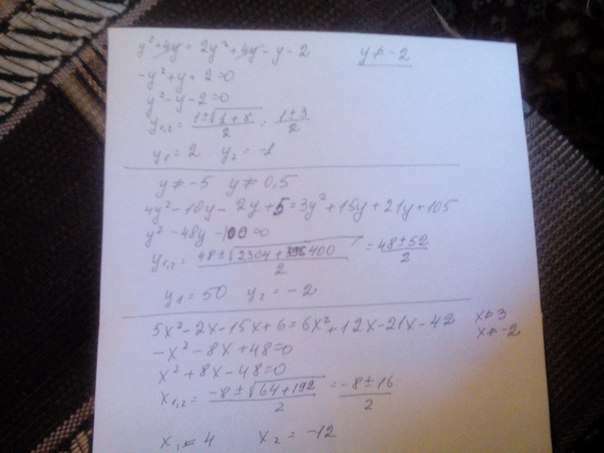 y² + 4y = 2y² + 4y - y - 2 y ≠ -2
-y² + y + 2 = 0
y² - y - 2 = 0
y₁,₂ = (1 ± √(1 + 8))/2 = (1 ± 3)/2
y₁ = 2 y₂ = -1
y ≠ -5 y ≠ 0,5
4y² - 10y - 2y + 5 = 3y² + 15y + 21y + 105
y² - 48y - 100 = 0
y₁,₂ = (48 ± √(2304 + 400))/2 = (48 ± 52)/2
y₁ = 50 y₂ = -2
5x² - 2x - 15x + 6 = 6x² + 12x - 21x - 42 x ≠ 3
x ≠ -2
-x² - 8x + 48 = 0
x² + 8x - 48 = 0
x₁,₂ = (-8 ± √(64 + 192))/2 = (-8 ± 16)/2
x₁ = 4 x₂ = -12